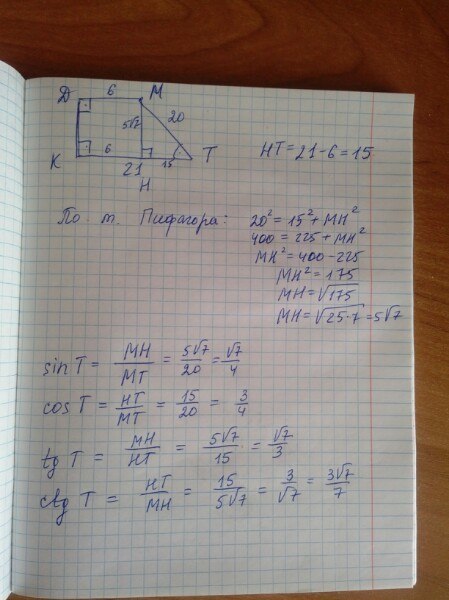 6
D M
20
5√7
6
K 21 15 T
H
HT = 21 - 6 = 15
По. т. Пифагора: 20² = 15² + MH²
400 = 225 + MH²
MH² = 400 - 225
MH² = 175
MH = √175
MH = √25·7 = 5√7
sin T = MH/MT = 5√7/20 = √7/4
cos T = HT/MT = 15/20 = 3/4
tg T = MH/HT = 5√7/15 = √7/3
ctg T = HT/MH = 15/5√7 = 3/√7 = 3√7/7